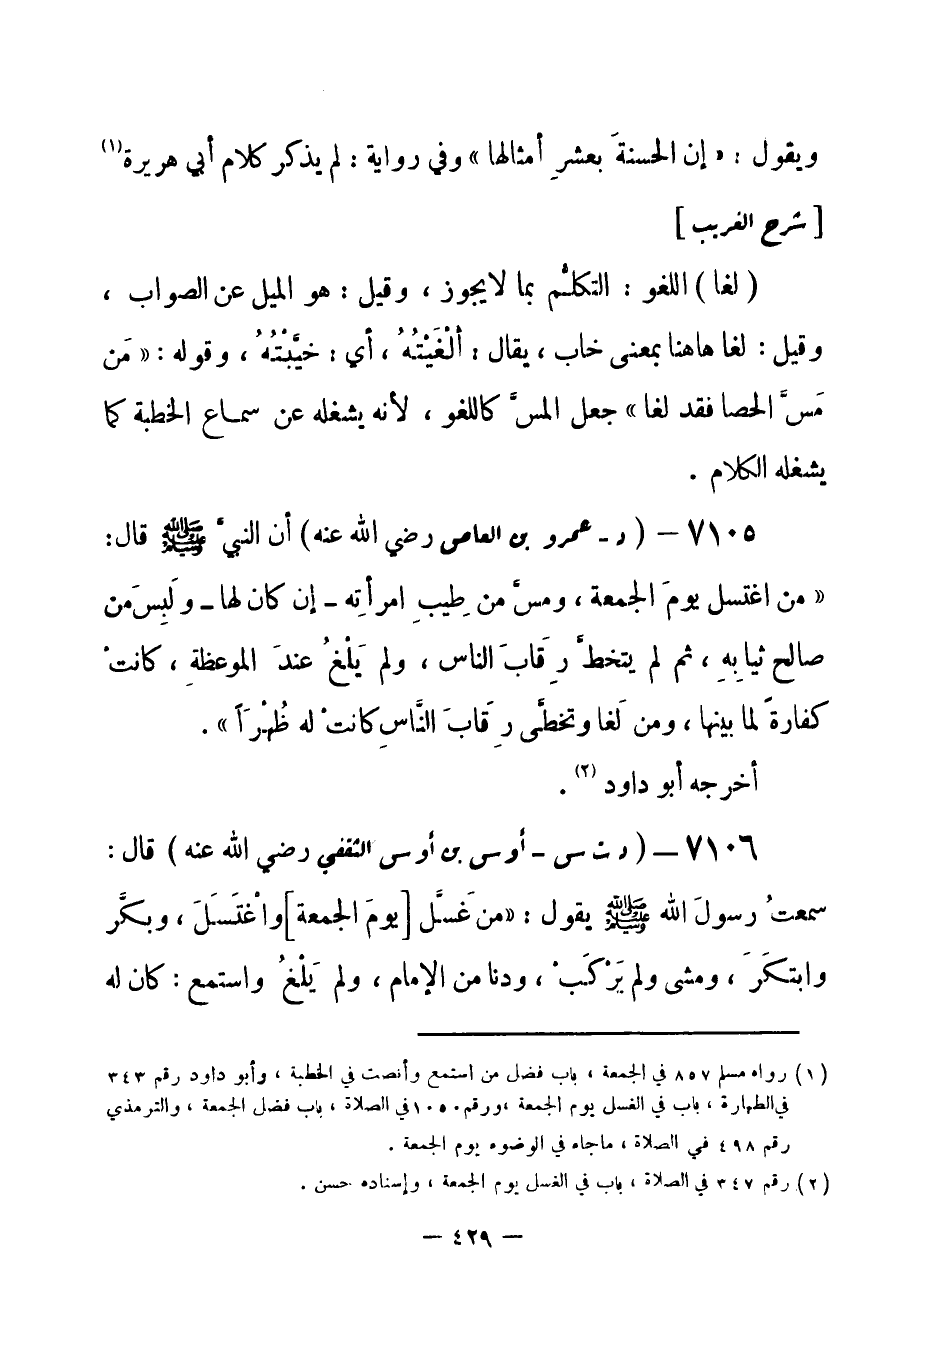 ويقول : « إن الحسنةَ بعشرِ أمثالها » وفي رواية : لم يذكر كلام أبي هريرة(١)
[ شرح الغريب ]
( لغا ) اللغو : التكلُّم بما لا يجوز ، وقيل : هو الميل عن الصواب ،
وقيل : لغا هاهنا بمعنى خاب ، يقال : ألْغَيْتُهُ ، أي : خيَّبْتُهُ ، وقوله : « مَن
مَسَّ الحصا فقد لغا » جعل المسَّ كاللغو ، لأنه يشغله عن سماع الخطبة كما
يشغله الكلام .
٧١٠٥ – ( د - عمرو بن العاصي رضي الله عنه ) أن النبيَّ ﷺ قال:
« من اغتسل يومَ الجمعة ، ومسَّ من طِيبِ امرأتِه - إن كان لها - ولَبِسَ من
صالح ثيابِهِ ، ثم لم يتخطَّ رِقابَ الناس ، ولم يَلْغُ عندَ الموعظةِ ، كانتْ
كفارةً لما بينها ، ومن لَغا وتخطَّى رِقابَ النَّاسِ كانتْ له ظُهْرَاً » .
أخرجه أبو داود (٢) .
٧١٠٦ – ( د ت س - أوس بن أوس الثقفي رضي الله عنه ) قال :
سمعتُ رسولَ الله ﷺ يقول : «من غَسَّل [يومَ الجمعة] واغْتَسَلَ ، وبكَّر
وابتكَرَ ، ومشى ولم يَرْكَبْ ، ودنا من الإمام ، ولم يَلْغُ واستمع : كان له
(١) رواه مسلم ٨٥٧ في الجمعة ، باب فضل من استمع وأنصت في الخطبة ، وأبو داود رقم ٣٤٣
في الطهارة ، باب في الغسل يوم الجمعة ، ورقم ١٠٥٠ في الصلاة ، باب فضل الجمعة ، والترمذي
رقم ٤٩٨ في الصلاة ، ماجاء في الوضوء يوم الجمعة .
(٢) رقم ٣٤٧ في الصلاة ، باب في الغسل يوم الجمعة ، وإسناده حسن .
— ٤٢٩ —